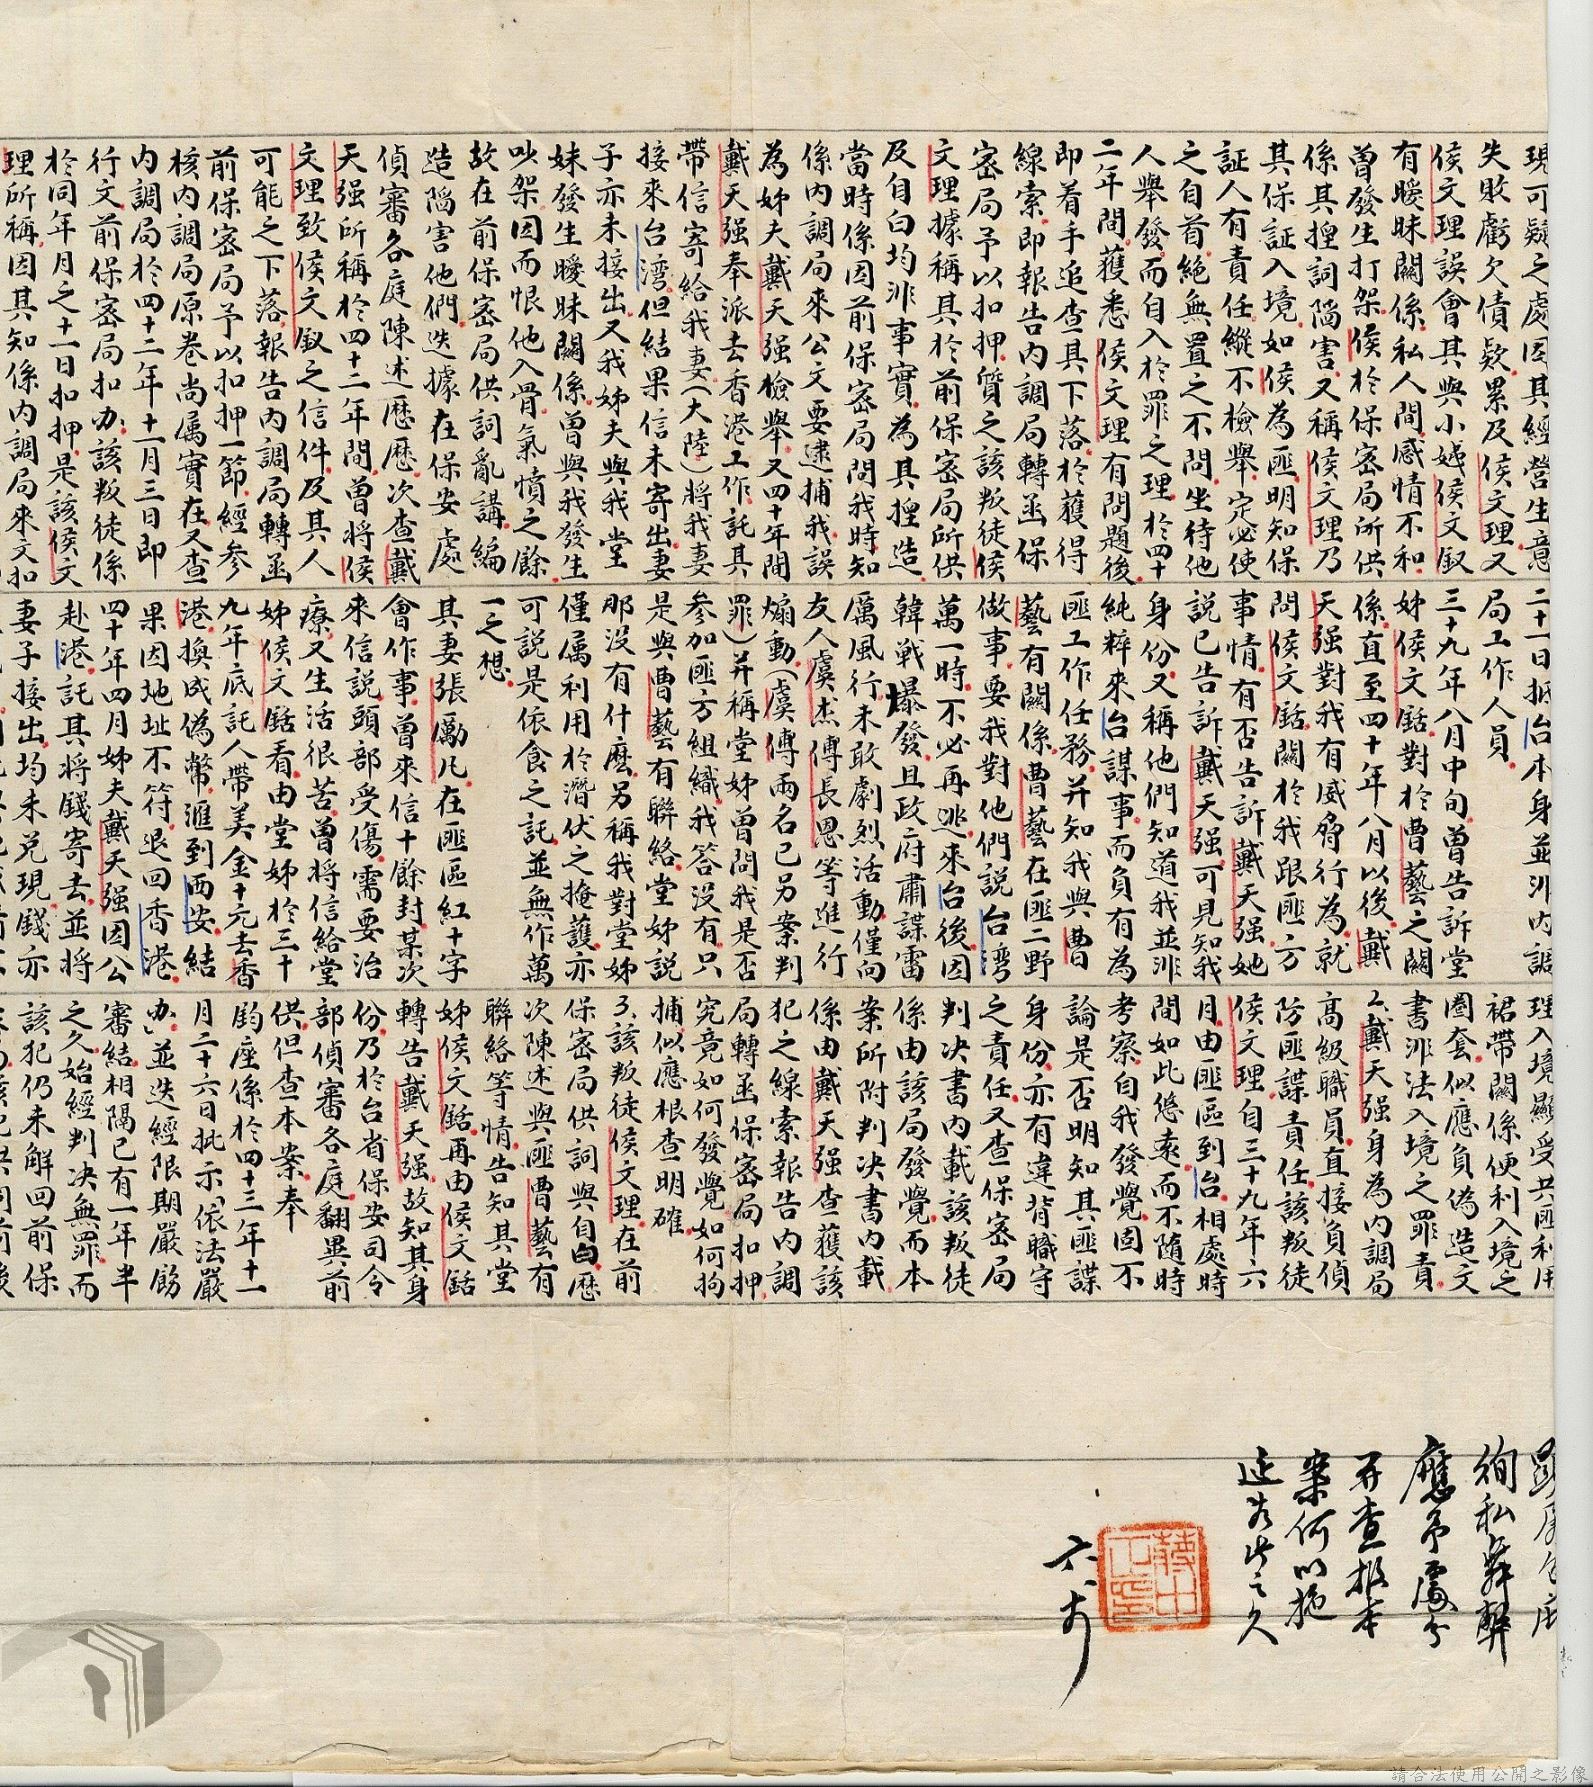 現可疑之處因其經營生意
失敗虧欠債欵累及侯文理又
侯文理誤會其與小姨侯文釵
有曖昧關係私人間感情不和
曾發生打架侯於保密局所供
係其捏詞陷害又稱侯文理乃
其保証入境如侯為匪明知保
証人有責任縱不檢舉定必使
之自首絕無置之不問坐待他
人舉發而自入於罪之理於四十
二年間獲悉侯文理有問題後
即着手追查其下落於獲得
線索即報告內調局轉函保
密局予以扣押質之該叛徒侯
文理據稱其於前保密局所供
及自白均非事實為其捏造
當時係因前保密局問我時知
係內調局來公文要逮捕我誤
為姊夫戴天强檢舉又四十年間
戴天强奉派去香港工作託其
帶信寄給我妻(大陸)將我妻
接來台湾但結果信未寄出妻
子亦未接出又我姊夫與我堂
妹發生曖昧關係曾與我發生
吵架因而恨他入骨氣憤之餘
故在前保密局供詞亂講編
造陷害他們迭據在保安處
偵審各庭陳述歷歷次查戴
天强所稱於四十二年間曾將侯
文理致侯文釵之信件及其人
可能之下落報告內調局轉函
前保密局予以扣押一節經參
核內調局原卷尚屬實在又查
內調局於四十二年十一月三日即
行文前保密局扣办該叛徒係
於同年月之十一日扣押是該侯文
理所稱因其知係內調局來文扣
二十一日抵台本身並非內調
局工作人員
三十九年八月中旬曾告訴堂
姊侯文銛對於曹藝之關
係直至四十年八月以後戴
天强對我有威脅行為就
問侯文銛關於我跟匪方
事情有否告訴戴天强她
說已告訴戴天强可見知我
身份又稱他們知道我並非
純粹來台謀事而負有為
匪工作任務并知我與曹
藝有關係曹藝在匪二野
做事要我對他們說台湾
萬一時不必再逃來台後因
韓戰爆發且政府肅諜雷
厲風行未敢劇烈活動僅向
友人虞杰傅長恩等進行
煽動(虞傅兩名已另案判
罪)并稱堂姊曾問我是否
參加匪方組織我答没有只
是與曹藝有聯絡堂姊說
那没有什麼另稱我對堂姊
僅属利用於潛伏之掩護亦
可説是依食之託並無作萬
一之想
其妻張勵凡在匪區紅十字
會作事曾來信十餘封某次
來信說頭部受傷需要治
療又生活很苦曾將信給堂
姊侯文銛看由堂姊於三十
九年底託人帶美金十元去香
港換成偽幣滙到西安結
果因地址不符退回香港
四十年四月姊夫戴天强因公
赴港託其將錢寄去並將
妻子接出均未兑現錢亦
理入境顯受共匪利用
裙帶關係便利入境之
圈套似應負偽造文
書非法入境之罪責
2.戴天强身為內調局
高級職員直接負偵
防匪諜責任該叛徒
侯文理自三十九年六
月由匪區到台相處時
間如此悠遠而不隨時
考察自我發覺固不
論是否明知其匪諜
身份亦有違背職守
之責任又查保密局
判决書內載該叛徒
係由該局發覺而本
案所附判决書內載
係由戴天强查獲該
犯之線索報告內調
局轉函保密局扣押
究竟如何發覺如何拘
捕似應根查明確
3.該叛徒侯文理在前
保密局供詞與自白歷
次陳述與匪曹藝有
聯絡等情告知其堂
姊侯文銛再由侯文銛
轉告戴天强故知其身
份乃於台省保安司令
部偵審各庭翻異前
供但查本案奉
鈞座係於四十三年十一
月二十六日批示「依法嚴
办」並迭經限期嚴飭
審結相隔已有一年半
之久始經判决無罪而
該犯仍未解回前保
徇私舞弊
應予處分
并查報本
案何以拖
延如此之久
蔣中
正印
請合法使用公開之影像